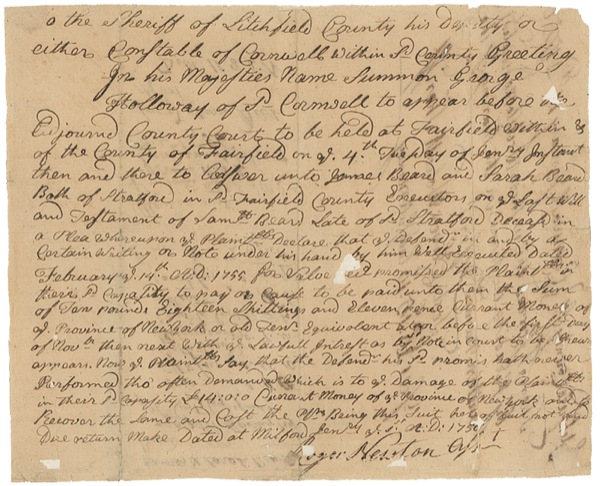 o the Sheriff of Litchfield County his Deputy or
either Constable of Cornwell Within sd County Greeting
In his Majesties Name Summon George
Holloway of sd Cornwell to appear before an
Adjourned County Court to be held at Fairfield Within &
of the County of Fairfield on ye 4th Tuesday of Jenry Instant
then and there to Answer unto James Beard and Sarah Beard
Both of Stratford in sd Fairfield County Executors on ye Last Will
and Testament of Samll Beard Late of sd Stratford Deceasd in
a Plea Whereupon ye Plaintffs Declare that ye Defendt in and by a
Certain Writing or Note under his hand by him Well Executed Dated
February ye 14th A:D: 1755 for Value recd promised the Plaintffs in
theire sd Capasity to pay or Cause to be paid unto them the Sum
of Ten pounds Eighteen Shillings and Eleven pence Currant Money of
ye Province of New York or old Tenr Equivolant at or before the first Day
of Novbr then next With ye Lawfull Intrest as by Note in Court to be Shewn
appears Now ye Plaintffs Say that the Defendt his sd promis hath never
Performed tho often Demanded Which is to ye Damage of the Plaintffs
in theire sd Capasity £14:0:0 Currant Money of ye Province of New York and to
Recover the Same and Cost the Plffs Being this Suit hereof fail not and
Due return Make Dated at Milford Jenry ye A:D: 1756
Roger Newton